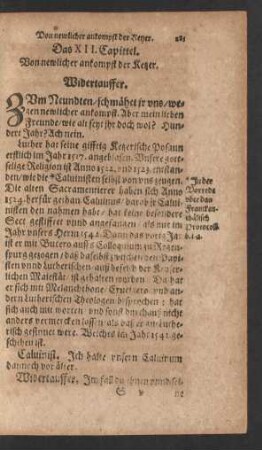 Von newlicher ankompst der Ketzer.
Das XII. Capittel.
Von newlicher ankompst der Ketzer.
Widertauffer.
ZVm Neundten / schmähet jr vns / we-
gen newlicher ankompst. Aber mein lieben
Freunde / wie alt seyt jhr doch wol? Hun-
dert Jahr? Ach nein.
Luther hat seine gifftig Ketzerische Posaun
erstlich im Jahr 1517. angeblasen. Vnsere gott-
selige Religion ist Anno 1522. vnd 1523. entstan-
den / wie die *Caluinisten selbst von vns zeugen.
Die alten Sacramentierer haben sich Anno
1524. herfür gethan
nisten den nahmen habt / hat keine besondere
Sect anfangs gehabt / als nur im
Jahr vnsers Herrn 1542. Dann das vorig Jar
ist er mit Bucero auffs Colloquium zu Regen-
spurg gezogen / daß daselbst zwischen den Papi-
sten vnd Lutherischen auß befehl der Keyser-
lichen Maiestät ist gehalten worden. Da hat
er sich mit Melanchthone Crutzigero vnd an-
dern Lutherischen Theologen besprochen: hat
sich auch mit worten / vnd sonst durchauß nicht
anders vermercken lassen / als daß er gut Luthe-
risch gesinnet were. Welches im Jahr 1541. ge-
schehen ist.
Caluinist. Ich halte vnsern Caluinum
dannoch vor älter.
Widertauffer. Im fall du jhnen
*In der
Vorrede
vber das
Francken-
thalisch
Protocoll
S v